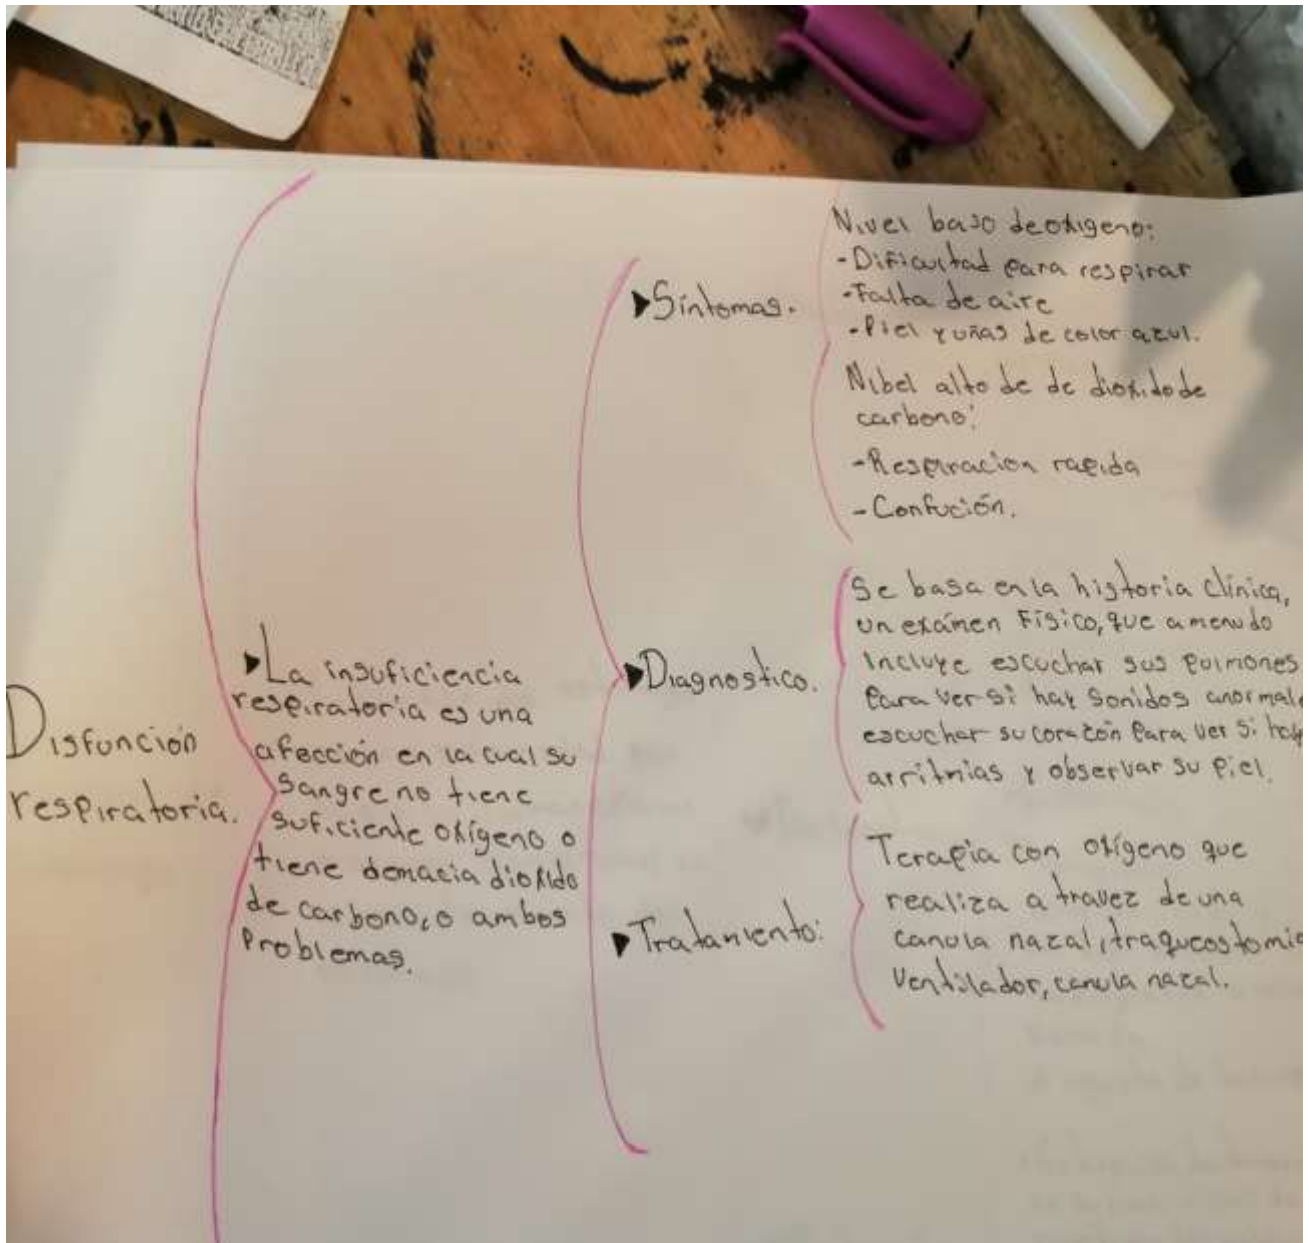 Disfunción
respiratoria.
▶La insuficiencia
respiratoria es una
afección en la cual su
sangre no tiene
suficiente oxígeno o
tiene demacia dioxido
de carbono, o ambos
Problemas.
▶Síntomas.
Nivel bajo de oxigeno:
-Dificultad para respirar
-Falta de aire
-Piel y uñas de color azul.
Nibel alto de de dioxido de
carbono:
-Respiracion rapida
-Confución.
▶Diagnostico.
Se basa en la historia clínica,
un exámen Físico, que a menudo
incluye escuchar sus pulmones
Para ver si hay sonidos anormale
escuchar su corazón Para ver si hay
arritmias y observar su piel.
▶Tratamiento:
Terapia con oxígeno que
realiza a travez de una
canula nazal, traqueostomia
Ventilador, canula nazal.